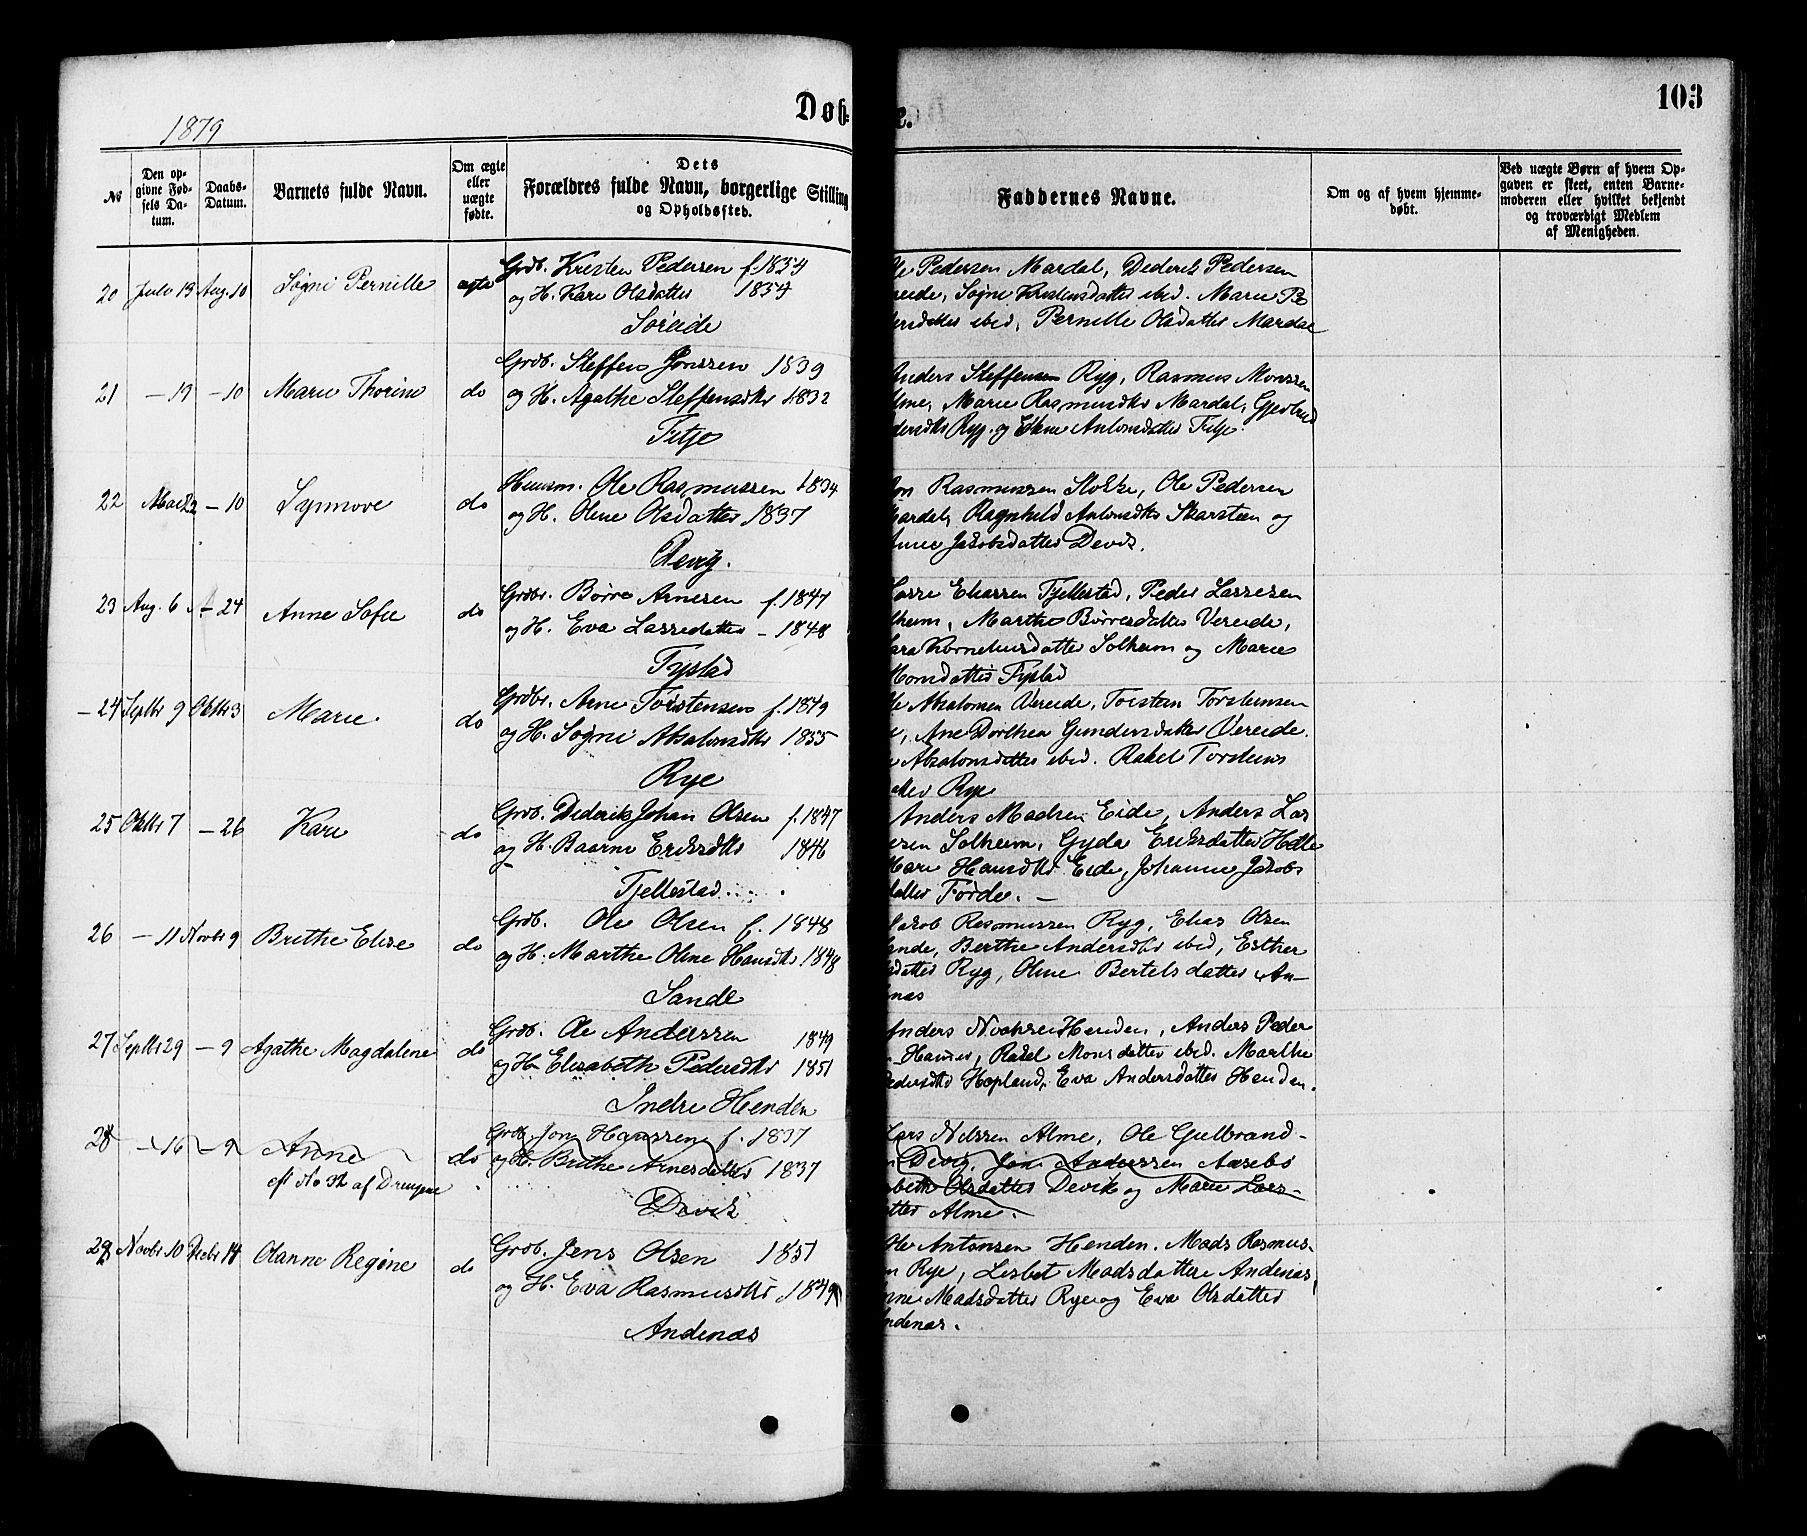 1879
Døb-
e.
103
No
Den op-
givne Fød-
sels Da-
tum.
Daabs-
Datum.
Barnets fulde Navn.
Om ægte
eller
uægte
fødte.
Dets
Forældres fulde Navn, borgerlige Stilling
og Opholdssted.
Faddernes Navne.
Om og af hvem hjemme-
døbt.
Ved uægte Børn af hvem Op-
gaven er skeet, enten Barne-
moderen eller hvilket bekjendt
og troværdigt Medlem
af Menigheden.
20 Juli 13 Aug. 10 Søgni Pernille ægte Grdb. Kristen Pedersen f. 1834
og H. Kari Olsdatter 1834
Søreide
Pedersen Mardal, Diderik Pedersen
reide, Søgne Kristensdatter ibid. Marie Pe
dersdatter ibid, Pernille Olsdatter Mardal
21 – 19 – 10 Marie Thorine do Grdb. Steffen Jonssen 1839
og H. Agathe Steffensdtr 1832
Fitje
Anders Steffensen Ryg, Rasmus Monssen
Alme, Marie Rasmusdtr Mardal, Gjertrud
dersdtr Ryg. og Oline Antonsdatter Fitje.
22 Mai 22 – 10 Synnøve do Huusm. Ole Rasmussen 1834
og H. Oline Olsdatter 1837
Devig.
Jon Rasmussen Stokke, Ole Pedersen
Mardal, Ragnhild Antonsdtr Skarsteen og
Anne Jakobsdatter Devik.
23 Aug. 6 A – 24 Anne Sofie do Grdbr. Børre Arnesen f. 1847
og H. Eva Lassedatter – 1848
Fystad
Lasse Eliassen Tjellestad, Peder Lassesen
lheim, Marthe Børresdatter Vereide,
ara Korneliusdatter Solheim og Marie
Monsdatter Fystad
– 24 Septbr 9 Oktbr 3 Marie do Grdbr. Arne Torstensen f. 1849
og H. Søgni Absalonsdtr 1855
Rye
Absalonsen Vereide, Torsten Torstensen
e, Ane Dorthea Gundersdatter Vereide.
Absalonsdatter ibid. Rakel Torstens
datter Rye
25 Oktbr 7 – 26 Kari do Grdb. Diderik Johan Olsen f. 1847
og H. Baarni Eriksdtr 1846
Tjellestad
Anders Madsen Eide, Anders Las
sesen Solheim, Gyda Eriksdatter Hetle
Mari Hansdtr Eide, Johanne Jakobs
datter Førde. –
26 – 11 Novbr 9 Brithe Elise do Grdb. Ole Olsen f. 1848
og H. Marthe Oline Hansdtr 1848
Sande
Jakob Rasmussen Ryg, Elias Olsen
ande, Berthe Andersdtr ibid, Esther
datter Ryg, Oline Bertelsdatter An–
enæs
27 Septbr 29 – 9 Agathe Magdalene do Grdb. Ole Anderssen 1849
og H Elisabeth Pedersdtr 1851
Indre Henden
Anders Henden, Anders Peder
Hannes, Rakel Monsdatter ibid. Marthe
Pedersdtr Hopland, Eva Andersdatter Henden.
28 – 16 – 9 Anne do Grdb. Jon Hanssen f. 1837
cfr No 32 af Drengene
og H. Brithe Arnesdatter 1837
Devik
Lars Nilssen Alme, Ole Gulbrand–
n Devig, Jon Anderssen Aasebø
beth Olsdatter Devik og Marie Lars–
datter Alme.
29 Novbr 10 Decbr 14 Olanna Regine do Grdb. Jens Olsen 1851
og H. Eva Rasmusdtr 1849
Andenæs
Ole Antonsen Henden. Mads Rasmus-
n Rye, Lisbet Madsdatter Andenæs
nne Madsdatter Rye og Eva Olsdatter
ndenæs.